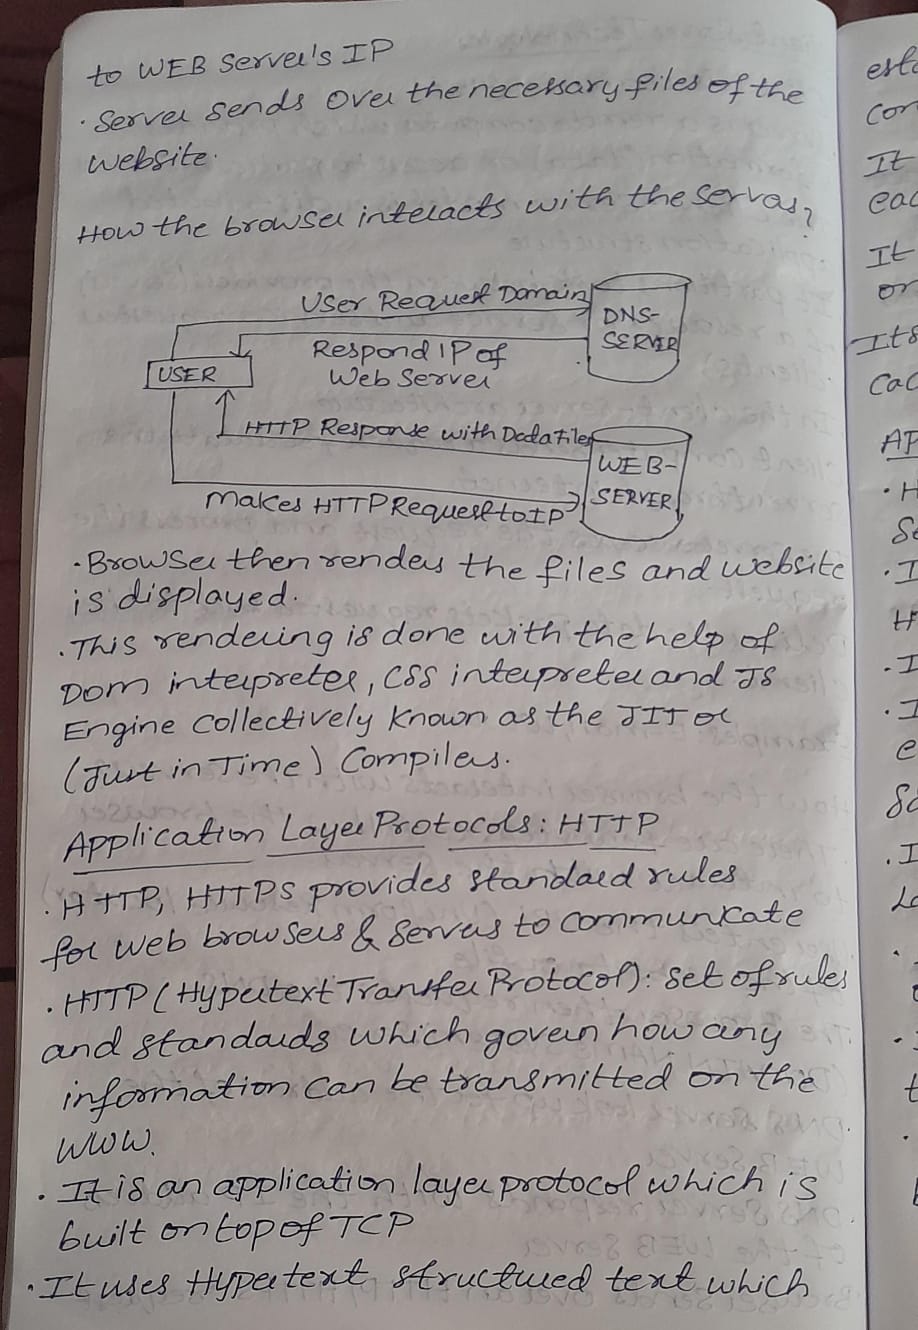 to WEB Server's IP
· Server sends over the necessary files of the
website.
How the browser interacts with the servers?
User Request Domain
DNS-
SERVER
Respond IP of
Web Server
USER
HTTP Response with Data Files
WEB-
SERVER
Makes HTTP Request to IP
· Browser then renders the files and website
is displayed.
· This rendering is done with the help of
DOM interpreter, CSS interpreter and JS
Engine collectively known as the JIT or
(Just in Time) Compilers.
Application Layer Protocols: HTTP
· HTTP, HTTPS provides standard rules
for web browsers & servers to communicate
· HTTP (Hypertext Transfer Protocol): set of rules
and standards which govern how any
information can be transmitted on the
WWW.
· It is an application layer protocol which is
built on top of TCP
· It uses Hypertext structured text which
It
It
or
· H
· I
· I
· I
· I